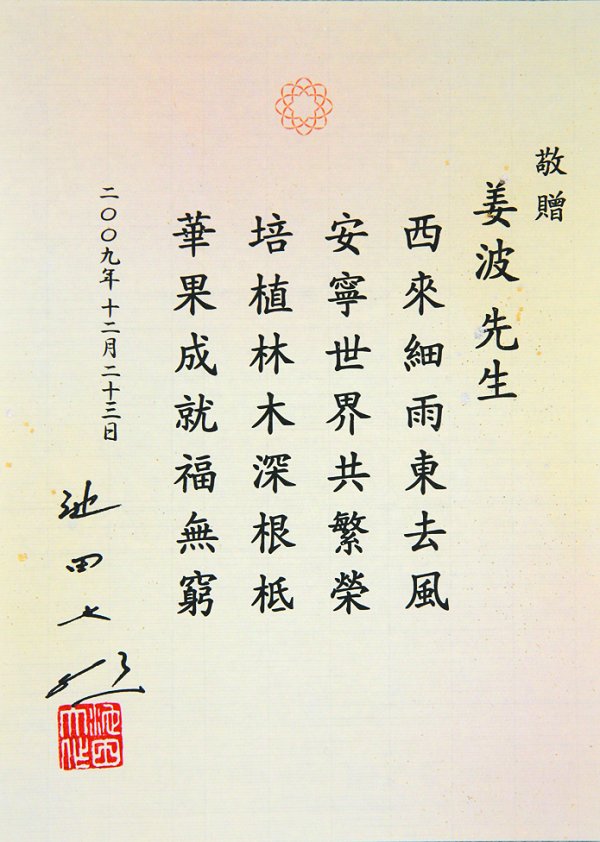 敬贈
姜波先生
西來細雨東去風
安寧世界共繁榮
培植林木深根柢
華果成就福無窮
二〇〇九年十二月二十三日
池田大作